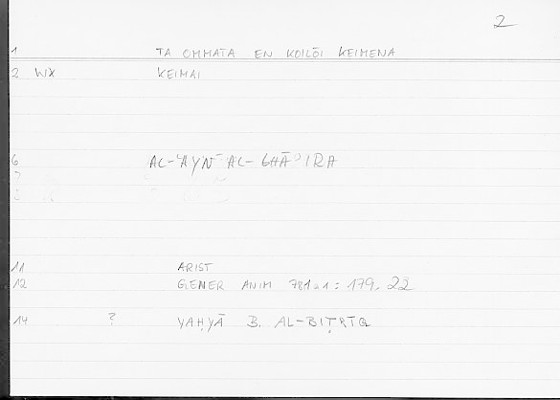 2
1 TA OMMATA EN KOILŌI KEIMENA
2 WX KEIMAI
6 AL-ʿAYN AL-GHĀʾIRA
7
8
11 ARIST
12 GENER ANIM 781a1 : 179, 22
14 ? YAḤYĀ B. AL-BIṬRĪQ